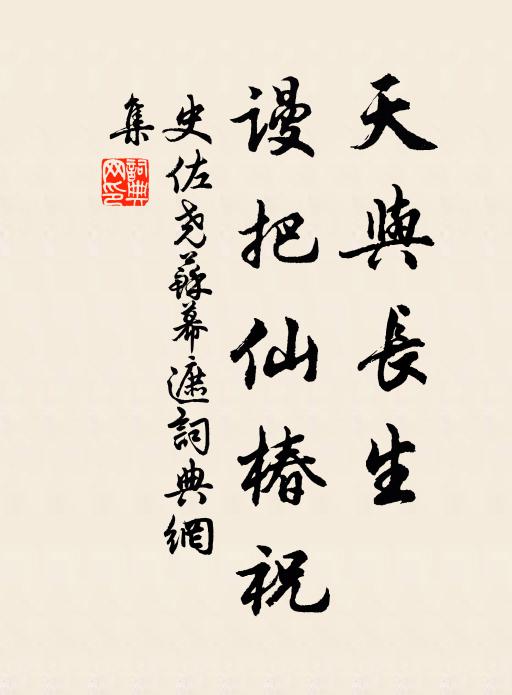 天與長生
謾把仙椿祝
史佐堯蘇幕遮詞典網
集
詞典
网印